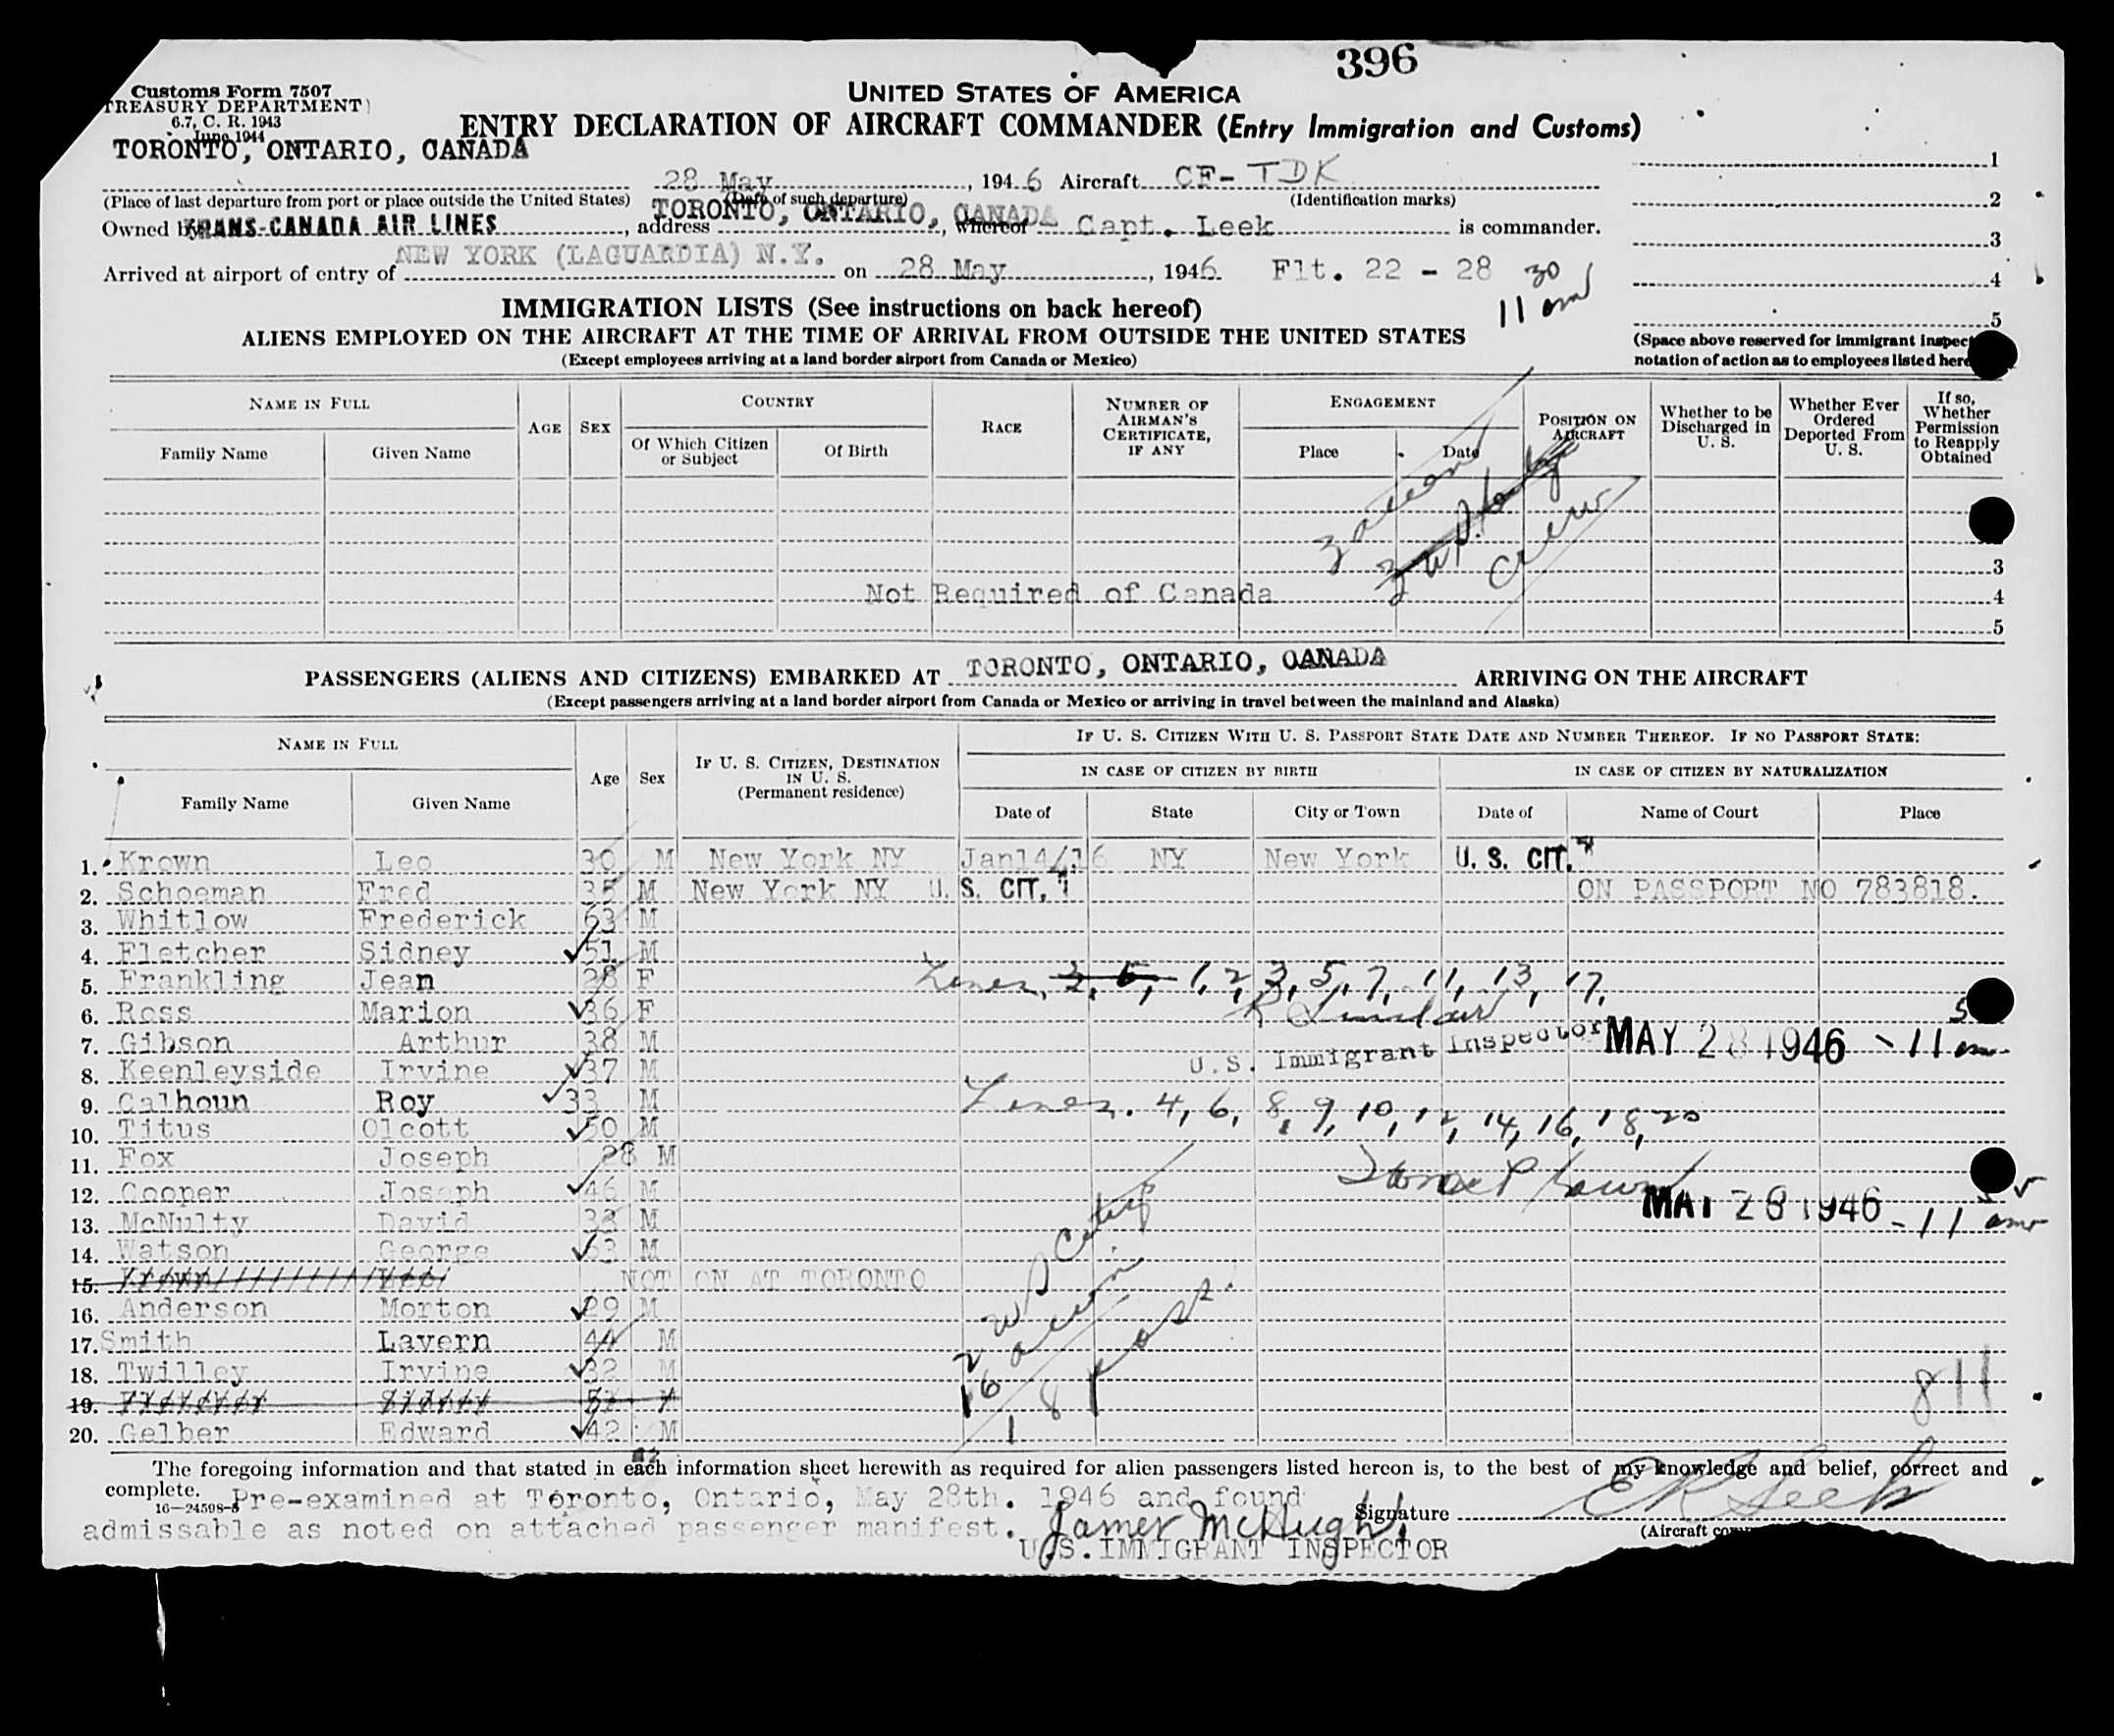 396
Customs Form 7507
TREASURY DEPARTMENT
6.7, C. R. 1943
June 1944
UNITED STATES OF AMERICA
ENTRY DECLARATION OF AIRCRAFT COMMANDER (Entry Immigration and Customs)
TORONTO, ONTARIO, CANADA
28 May, 1946 Aircraft CF-TDK
(Place of last departure from port or place outside the United States) (Date of such departure) (Identification marks)
Owned by TRANS-CANADA AIR LINES, address TORONTO, ONTARIO, CANADA, whereof Capt. Leek is commander.
Arrived at airport of entry of NEW YORK (LAGUARDIA) N.Y. on 28 May, 1946 Flt. 22 - 28
11 30 am
1
2
3
4
5
(Space above reserved for immigrant inspect
notation of action as to employees listed here
IMMIGRATION LISTS (See instructions on back hereof)
ALIENS EMPLOYED ON THE AIRCRAFT AT THE TIME OF ARRIVAL FROM OUTSIDE THE UNITED STATES
(Except employees arriving at a land border airport from Canada or Mexico)
NAME IN FULL AGE SEX COUNTRY RACE NUMBER OF AIRMAN'S CERTIFICATE, IF ANY ENGAGEMENT POSITION ON AIRCRAFT Whether to be Discharged in U. S. Whether Ever Ordered Deported From U. S. If so, Whether Permission to Reapply Obtained
Family Name Given Name Of Which Citizen or Subject Of Birth Place Date
3
Crew
3
Not Required of Canada 4
5
PASSENGERS (ALIENS AND CITIZENS) EMBARKED AT TORONTO, ONTARIO, CANADA ARRIVING ON THE AIRCRAFT
(Except passengers arriving at a land border airport from Canada or Mexico or arriving in travel between the mainland and Alaska)
NAME IN FULL Age Sex IF U. S. CITIZEN, DESTINATION IN U. S. (Permanent residence) IF U. S. CITIZEN WITH U. S. PASSPORT STATE DATE AND NUMBER THEREOF. IF NO PASSPORT STATE:
IN CASE OF CITIZEN BY BIRTH IN CASE OF CITIZEN BY NATURALIZATION
Family Name Given Name Date of State City or Town Date of Name of Court Place
1. Krown Leo 30 M New York NY Jan14/16 NY New York U. S. CIT.
2. Schoeman Fred 35 M New York NY U. S. CIT. ON PASSPORT NO 783818.
3. Whitlow Frederick 63 M
4. Fletcher Sidney 51 M
5. Frankling Jean 28 F Lines, 3, 5, 1, 2, 3, 5, 7, 11, 13, 17,
6. Ross Marion 36 F
7. Gibson Arthur 38 M U.S. Immigrant Inspector MAY 28 1946 - 11 am
8. Keenleyside Irvine 37 M
9. Calhoun Roy 33 M Lines. 4, 6, 8, 9, 10, 12, 14, 16, 18, 20
10. Titus Olcott 50 M
11. Fox Joseph 28 M
12. Cooper Joseph 46 M MAY 28 1946 - 11 am
13. McNulty David 38 M
14. Watson George 53 M
15. Krown Leo NOT ON AT TORONTO
16. Anderson Morton 29 M
17. Smith Lavern 44 M
18. Twilley Irvine 32 M
19. Fletcher Sidney 51 M
20. Gelber Edward 42 M
2 US Citiz
16 alien
18 pass.
811
The foregoing information and that stated in each information sheet herewith as required for alien passengers listed hereon is, to the best of my knowledge and belief, correct and
complete.
16—24598-3
Pre-examined at Toronto, Ontario, May 28th. 1946 and found
admissable as noted on attached passenger manifest. James McHugh
U.S. IMMIGRANT INSPECTOR
Signature EK Leek
(Aircraft